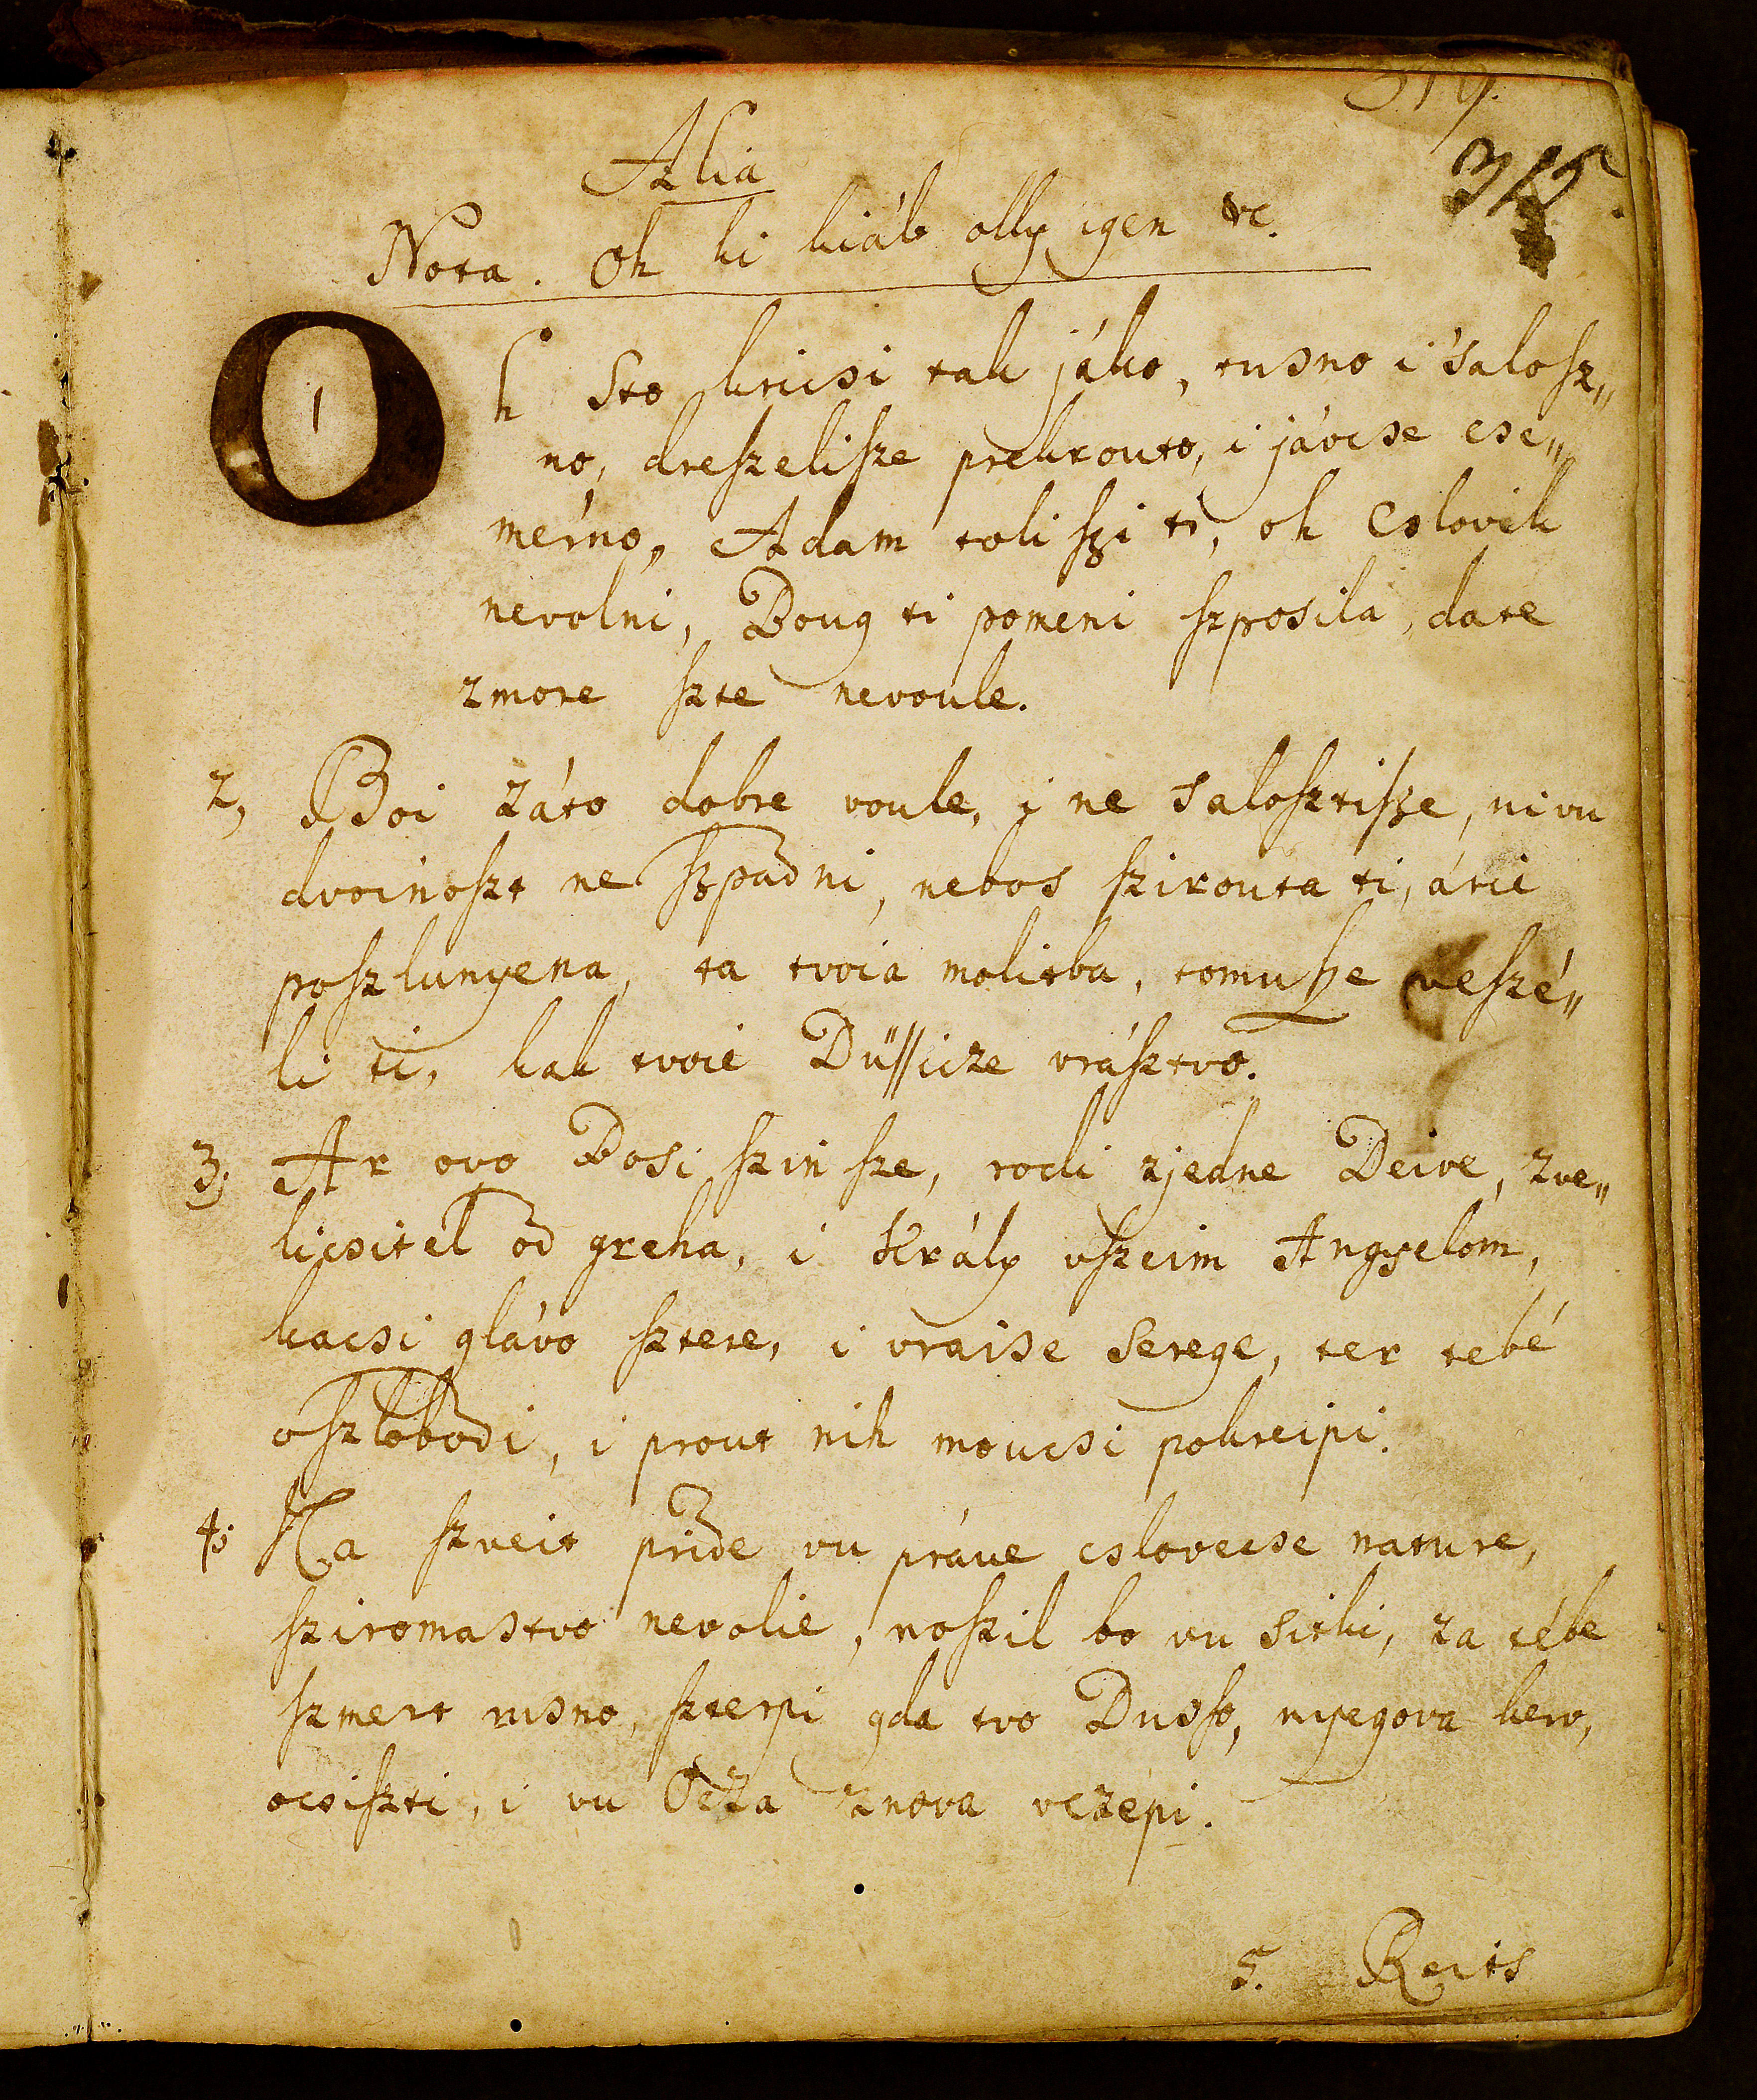 315.
Alia
Nota. Oh ki kiáb olly igen &c.
1 Oh sto kricsi tak jáko, tusno i 'salosz„
no, dreszelisze prekrouto, i jávcse cse„
mérno, Adam toli szi ti, oh cslovik
nevolni, Boug ti pomeni szposila, da te
zmore szte nevoule.
2, Boi záto dobre voule, i ne salosztisze, ni vu
dvoinoszt ne szpadni, nebos szirouta ti, árie
poszlunyena, ta tvoia molitba, tomusze veszé„
li ti, kak tvoie Düssicze vrásztvo.
3, Ar ovo Bosi szin sze, rodi zjedne Deive, zve„
licsitel od greha, i Krály vszeim Angyelom,
kacsi glávo sztere, i vraise serege, ter tebé
oszlobodi, i prout nih moucsi pokreipi.
4, Na szveit pride vu práve cslovecse nature,
sziromastvo nevolie, noszil bo vu sitki, za tébe
szmert rusno, szterpi gda tvo Dusso, nyegova kerv,
ocsiszti, i vu Ocza znova vczépi.
5. Reits